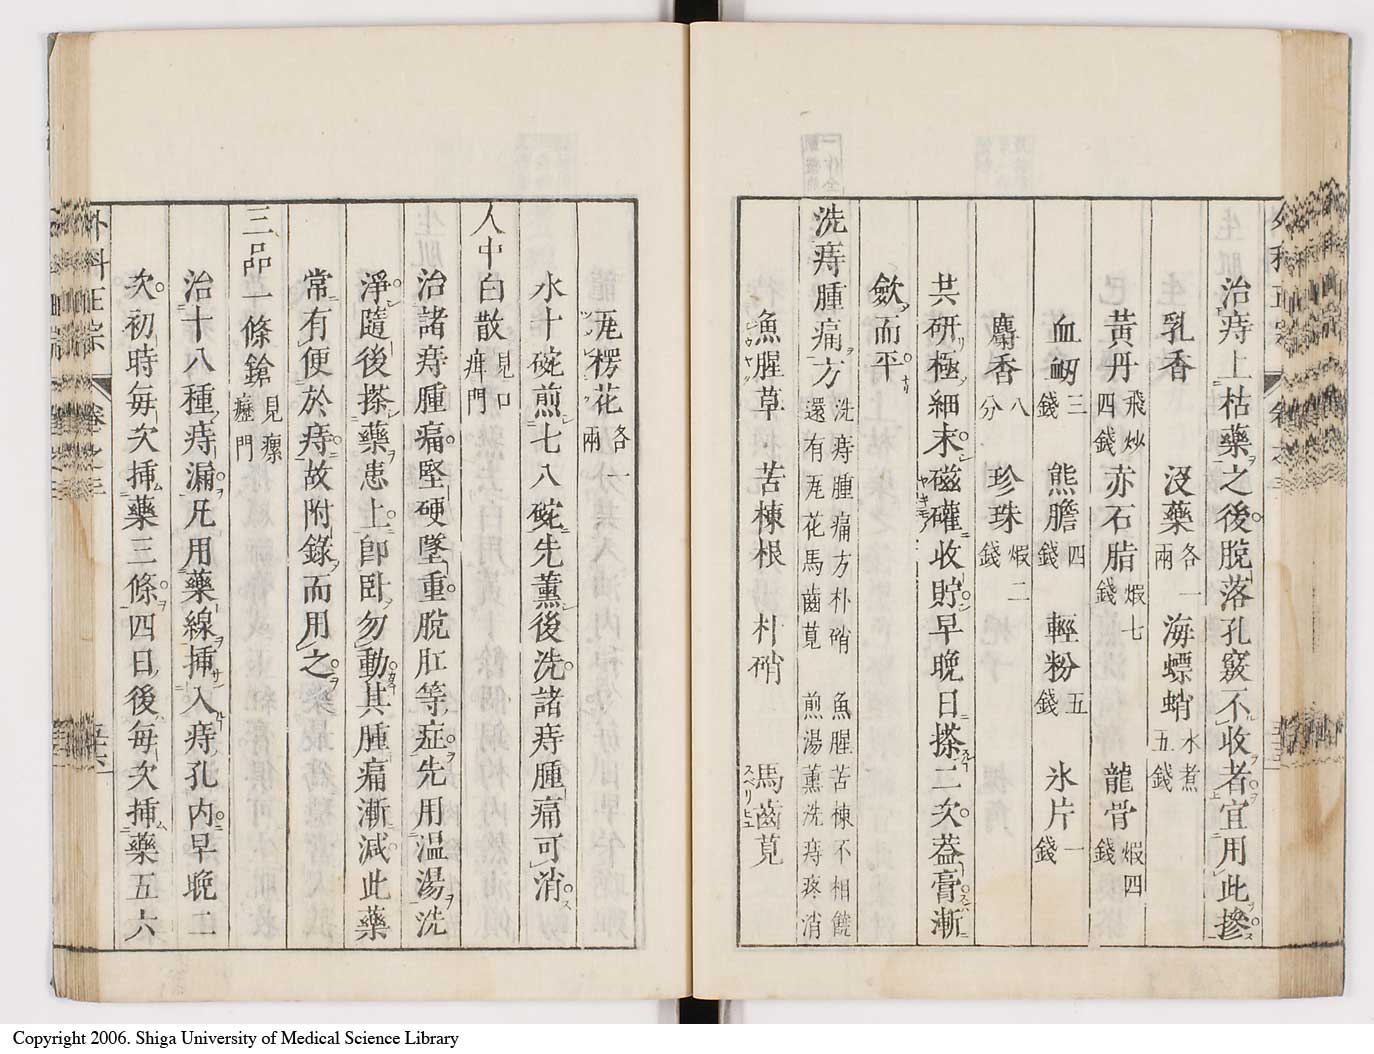 治痔上枯藥之後脫落孔竅不收者宜用此摻
乳香 沒藥各一兩 海螵蛸水煮五錢
黃丹飛炒四錢 赤石脂煆七錢 龍骨煆四錢
血蝎三錢 熊膽四錢 輕粉五錢 氷片一錢
麝香八分 珍珠煆二錢
共研極細末磁礶收貯早晚日搽二次葢膏漸
歛而平
洗痔腫痛方 洗痔腫痛方朴硝 魚腥苦棟不相饒
還有㼌花馬齒莧 煎湯薰洗痔疼消
魚腥草 苦棟根 朴硝 馬齒莧
㼌楞花各一兩
水十碗煎七八碗先薰後洗諸痔腫痛可消
人中白散見口疳門
治諸痔腫痛堅硬墜重脫肛等症先用温湯洗
淨隨後搽藥患上卽臥勿動其腫痛漸減此藥
常有便於痔故附錄而用之
三品一條鎗見瘰癧門
治十八種痔漏凡用藥線揷入痔孔內早晚二
次初時每次揷藥三條四日後每次揷藥五六
外科正宗 卷之三
Copyright 2006. Shiga University of Medical Science Library